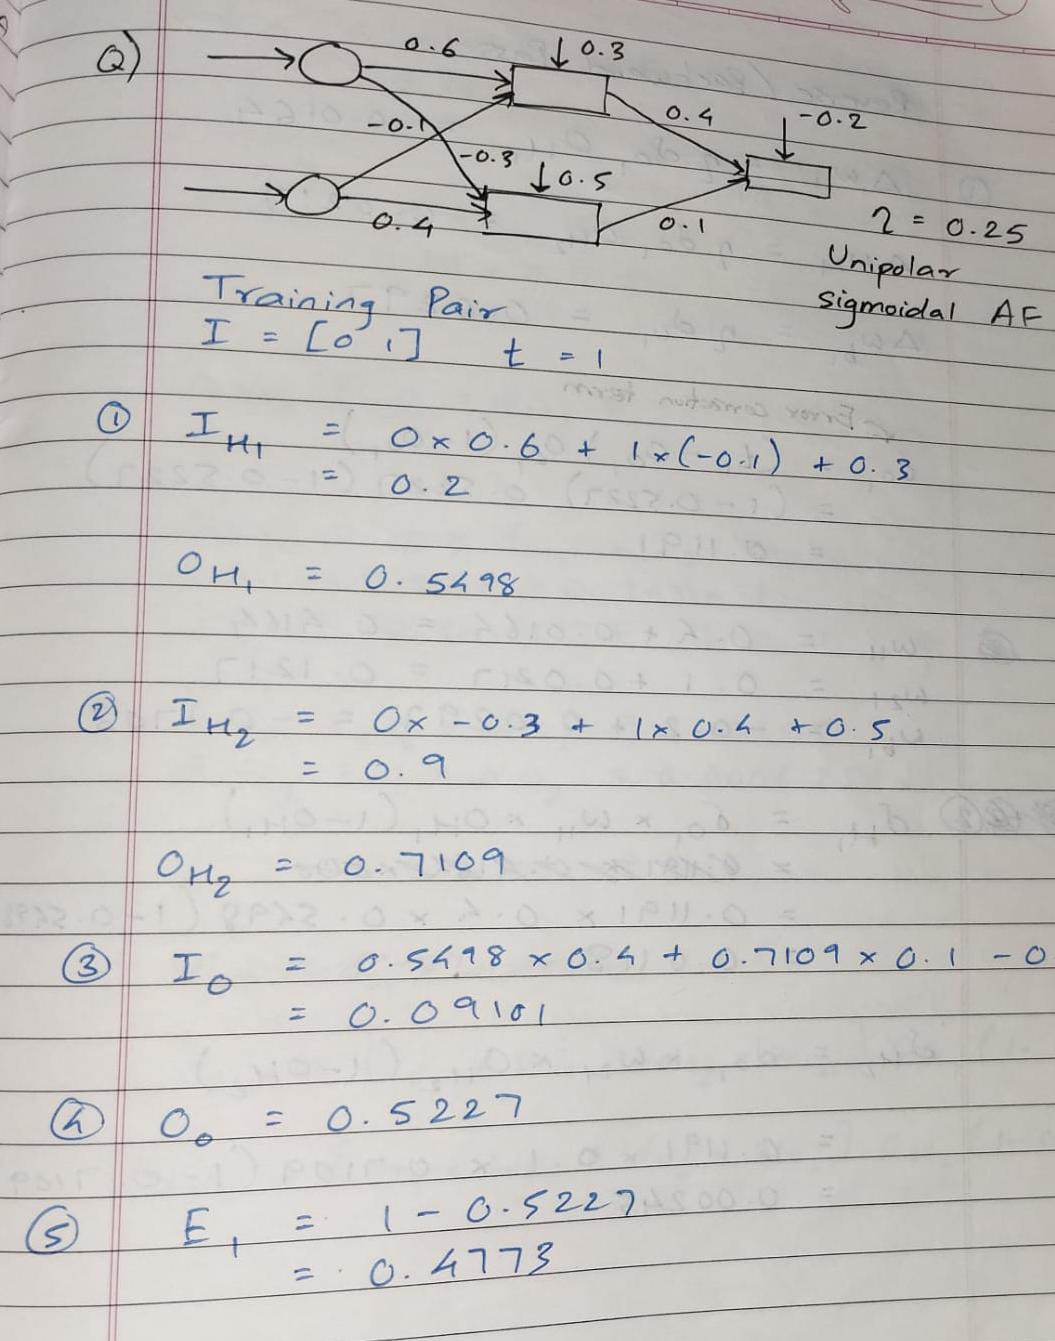 Q)
0.6
0.3
-0.1
0.4
-0.2
-0.3
0.5
0.4
0.1
η = 0.25
Unipolar
sigmoidal AF
Training Pair
I = [0 1] t = 1
① I_H1 = 0 x 0.6 + 1x(-0.1) + 0.3
= 0.2
O_H1 = 0.5498
② I_H2 = 0x -0.3 + 1x 0.4 + 0.5
= 0.9
O_H2 = 0.7109
③ I_O = 0.5498 x 0.4 + 0.7109 x 0.1 - 0
= 0.09101
④ O_o = 0.5227
⑤ E_1 = 1 - 0.5227
= 0.4773